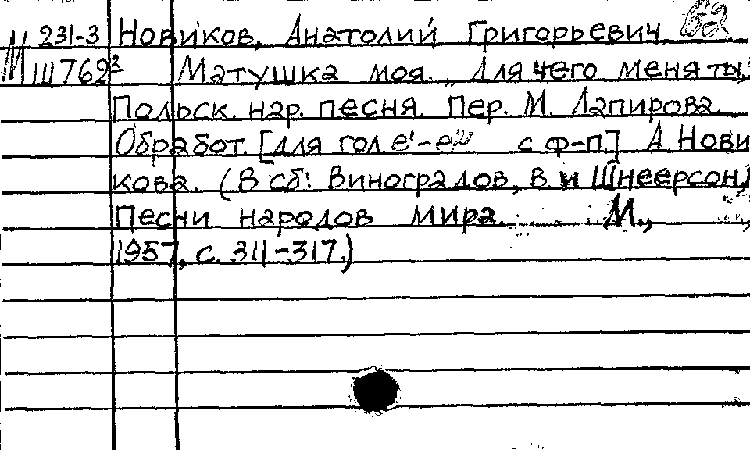 231-3 Новиков, Анатолий Григорьевич
М 111762² Матушка моя. Для чего меня ты,
Польск. нар. песня. Пер. М. Лапирова.
Обработ. [для гол e'-e'' с ф-п.] А Нови
кова. (В сб: Виноградов, В. и Шнеерсон,
Песни народов мира. М.,
1957, с. 311-317.)